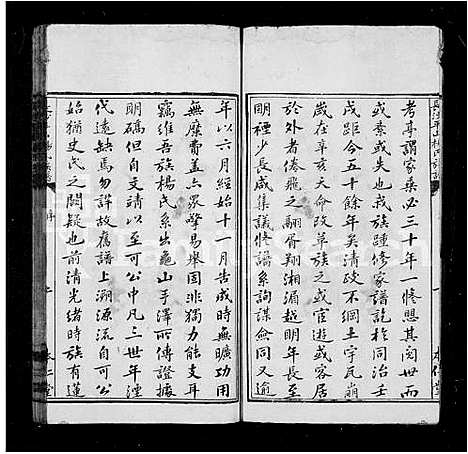 考亭謂家乘必三十年一修懸其閥世而
或棄或失也我族踵修家譜訖於同治壬
戌今五十餘年矣清政不綱土宇瓦崩
歲在辛亥天命改革族之或官遊或容居
於外者倦飛之翮胥翔湘湄越明年長夏
明禋少長咸集議修譜系詢謀僉同又逾
年以六月經始十一月告成時無曠功用
無靡費盖亦眾擎易舉固非獨力能支耳
竊維吾族楊氏系出龜山手澤所傳證據
明碻但自文靖以至中凡三世年湮
代遠缺焉勿詳故舊譜上溯源流自可公
始猶史氏之闕疑也前清光緒時族有蓮
序